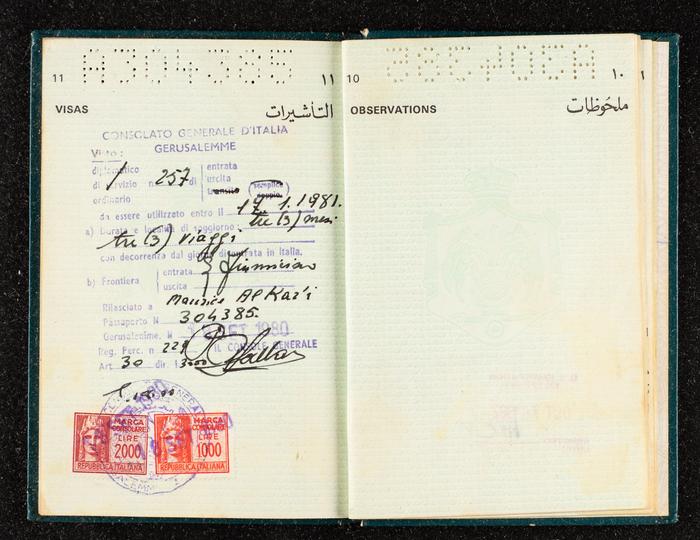 11 A304385 ١١
VISAS التأشيرات
CONSOLATO GENERALE D'ITALIA
GERUSALEMME
Visto:
diplomatico
di servizio n. 257 di
ordinario
entrata
uscita
transito
semplice
doppio
da essere utilizzato entro il 17.1.1981.
a) Durata e località di soggiorno: tre (3) mesi
tre (3) viaggi
con decorrenza dal giorno di entrata in Italia.
b) Frontiera
entrata
uscita
Fiumicino
Rilasciato a Maurice Al Kazi
Passaporto N. 304385.
Gerusalemme, lì OCT 1980
Reg. Perc. n 229 IL CONSOLE GENERALE
Art 30 dir. 3000
MARCA
CONSOLARE
LIRE
2000
REPUBBLICA ITALIANA
MARCA
CONSOLARE
LIRE
1000
REPUBBLICA ITALIANA
10 A304385 ١٠
OBSERVATIONS ملحوظات